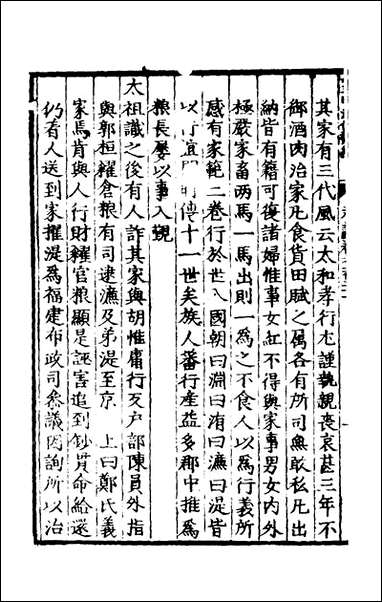 其家有三代風云太和孝行尤謹執親喪哀甚三年不
御酒肉治家凡食貨田賦之属各有所司無敢私凡出
納皆有籍可復諸婦惟事女紅不得與家事男女内外
極嚴家畜兩馬一馬出則一為之不食人以為行義所
感有家範二卷行於世入國朝曰淵曰洧曰濂曰湜皆
以行誼 傳十一世矣族人蕃行産益多郡中推為
粮長屡以事入覲
太祖識之後有人訐其家與胡惟庸行歹户部陳員外指
與郭桓糴倉粮有司逮濂及弟湜至京 上曰鄭氏義
家焉肯與人行財糴官粮顯是誣害追到鈔貫命給還
仍着人送到家擢湜為福建布政司叅議因詢所以治